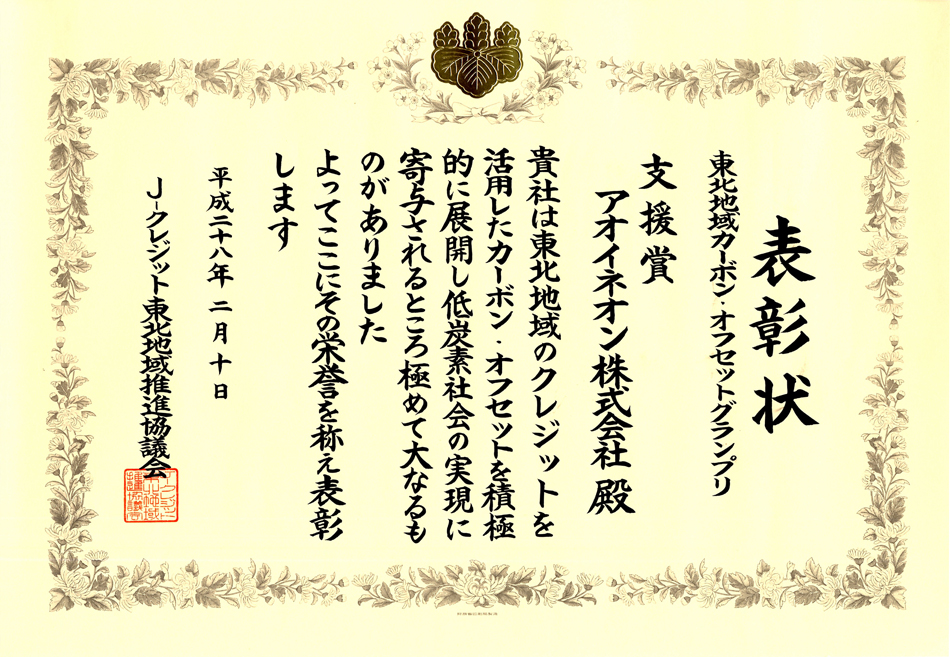 表彰状
東北地域カーボン・オフセットグランプリ
支援賞
アオイネオン株式会社 殿
貴社は東北地域のクレジットを
活用したカーボン・オフセットを積極
的に展開し低炭素社会の実現に
寄与されるところ極めて大なるも
のがありました
よってここにその栄誉を称え表彰
します
平成二十八年 二月 十日
J-クレジット東北地域推進協議会